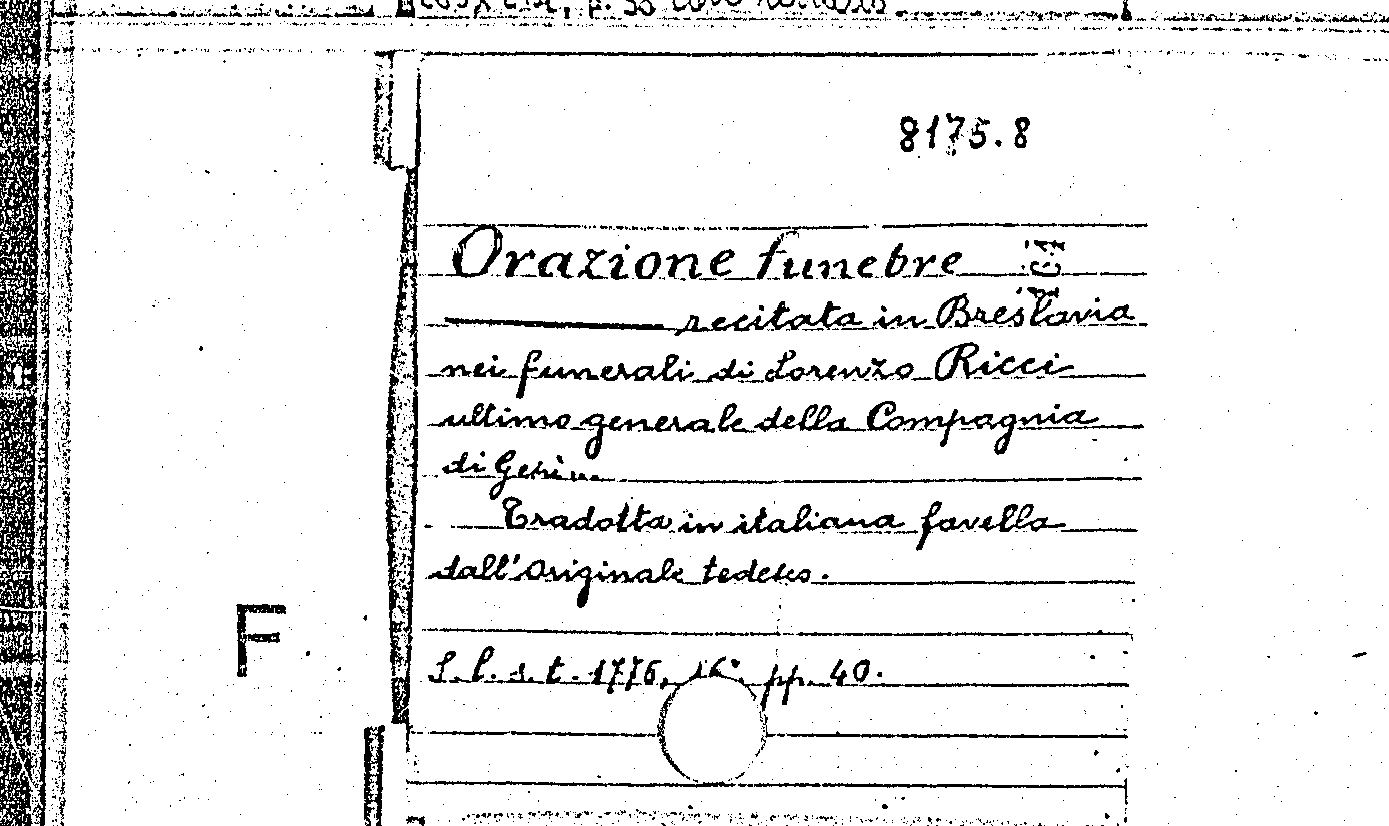 8175.8
Orazione funebre
recitata in Breslavia
nei funerali di Lorenzo Ricci
ultimo generale della Compagnia
di Gesù...
Tradotta in italiana favella
dall'originale tedesco.
F
S. l. s. t. 1776, 16°. pp. 40.